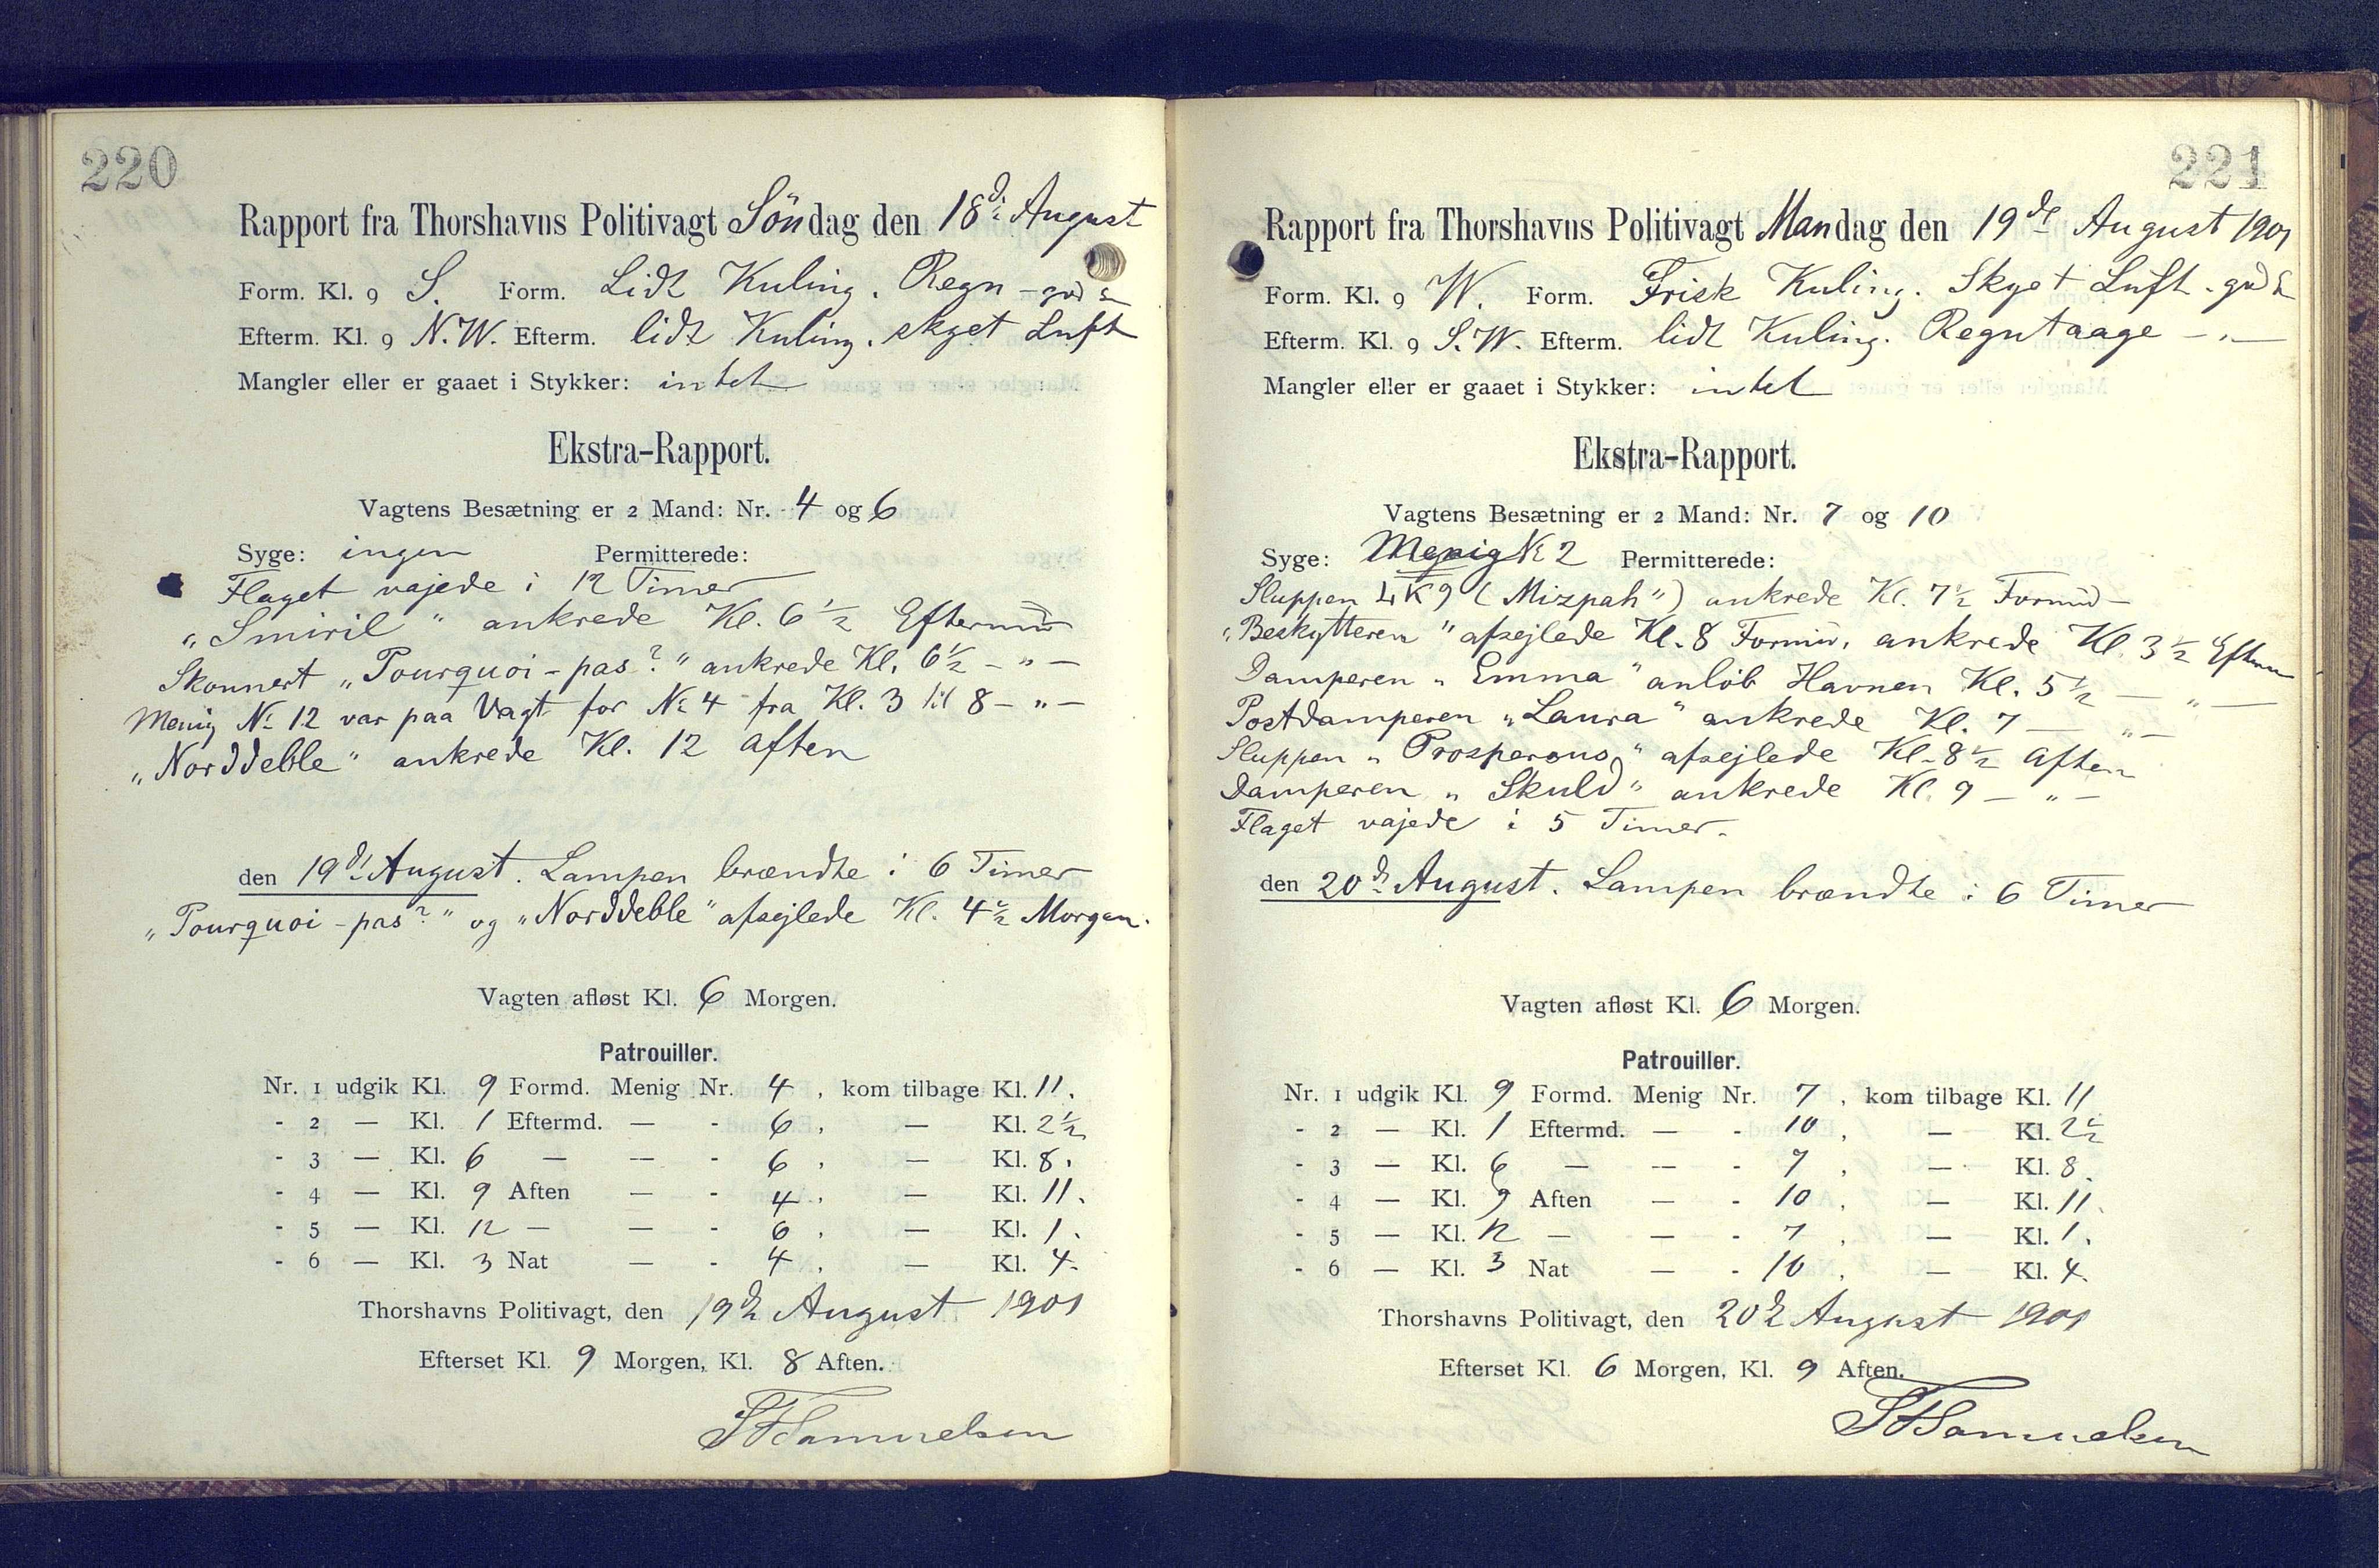 220
Rapport fra Thorshavns Politivagt Söndag den 18de August
Form. Kl. 9 S. Form. Lidt Kuling. Regn - god S
Efterm. Kl. 9 N.W. Efterm. lidt Kuling. skyet Luft
Mangler eller er gaaet i Stykker: intet
Ekstra-Rapport.
Vagtens Besætning er 2 Mand: Nr. 4 og 6
Syge: ingen Permitterede:
Flaget vajede i 12 Timer
„Smiril" ankrede Kl. 6 1/2 Eftermid
Skonnert „Pourquoi-pas?" ankrede Kl. 6 1/2 - " -
Menig No 12 var paa Vagt for No 4 fra Kl. 3 til 8 - " -
„Norddeble" ankrede Kl. 12 Aften
den 19de August. Lampen brændte i 6 Timer
„Pourquoi-pas?" og „Norddeble" afsejlede Kl. 4 1/2 Morgen.
Vagten afløst Kl. 6 Morgen.
Patrouiller.
Nr. 1 udgik Kl. 9 Formd. Menig Nr. 4, kom tilbage Kl. 11.
- 2 — Kl. 1 Eftermd. — - 6, — Kl. 2 1/2
- 3 — Kl. 6 — — - 6, — Kl. 8.
- 4 — Kl. 9 Aften — - 4, — Kl. 11.
- 5 — Kl. 12 — — - 6, — Kl. 1.
- 6 — Kl. 3 Nat — - 4, — Kl. 4.
Thorshavns Politivagt, den 19de August 1901
Efterset Kl. 9 Morgen, Kl. 8 Aften.
SFSamuelsen
221
Rapport fra Thorshavns Politivagt Mandag den 19de August 1901
Form. Kl. 9 W. Form. Frisk Kuling. Skyet Luft - god S
Efterm. Kl. 9 S.W. Efterm. lidt Kuling. Regntaage - " -
Mangler eller er gaaet i Stykker: intet
Ekstra-Rapport.
Vagtens Besætning er 2 Mand: Nr. 7 og 10
Syge: Menig No 2 Permitterede:
Sluppen LK 9 („Mizpah") ankrede Kl. 7 1/2 Formid -
„Beskytteren" afsejlede Kl. 8 Formid, ankrede Kl. 3 1/2 Efterm
Damperen „Emma" anlöb Havnen Kl. 5 1/2 — " —
Postdamperen „Laura" ankrede Kl. 7 — " —
Sluppen „Prosperous" afsejlede Kl. 8 1/2 Aften
Damperen „Skuld" ankrede Kl. 9 — " —
Flaget vajede i 5 Timer.
den 20de August. Lampen brændte i 6 Timer
Vagten afløst Kl. 6 Morgen.
Patrouiller.
Nr. 1 udgik Kl. 9 Formd. Menig Nr. 7, kom tilbage Kl. 11
- 2 — Kl. 1 Eftermd. — - 10, — Kl. 2 1/2
- 3 — Kl. 6 — — - 7, — Kl. 8.
- 4 — Kl. 9 Aften — - 10, — Kl. 11.
- 5 — Kl. 12 — — - 7, — Kl. 1.
- 6 — Kl. 3 Nat — - 10, — Kl. 4.
Thorshavns Politivagt, den 20de August 1901
Efterset Kl. 6 Morgen, Kl. 9 Aften.
SFSamuelsen